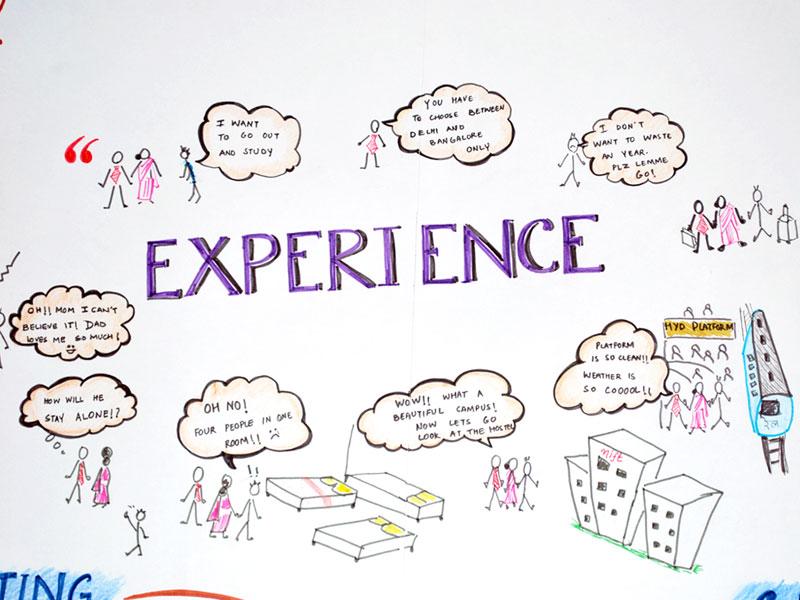 “
I WANT
TO GO OUT
AND STUDY
YOU HAVE
TO CHOOSE BETWEEN
DELHI AND
BANGALORE
ONLY
I DON'T
WANT TO WASTE
AN YEAR.
PLZ LEMME
GO!
EXPERIENCE
OH!! MOM I CAN'T
BELIEVE IT! DAD
LOVES ME SO MUCH!
HYD PLATFORM
PLATFORM
IS SO CLEAN!!
WEATHER IS
SO COOOOL!!
रेल
HOW WILL HE
STAY ALONE!?
OH NO!
FOUR PEOPLE IN ONE
ROOM!!
!!
WOW!! WHAT A
BEAUTIFUL CAMPUS!
NOW LETS GO
LOOK AT THE HOSTEL
TING